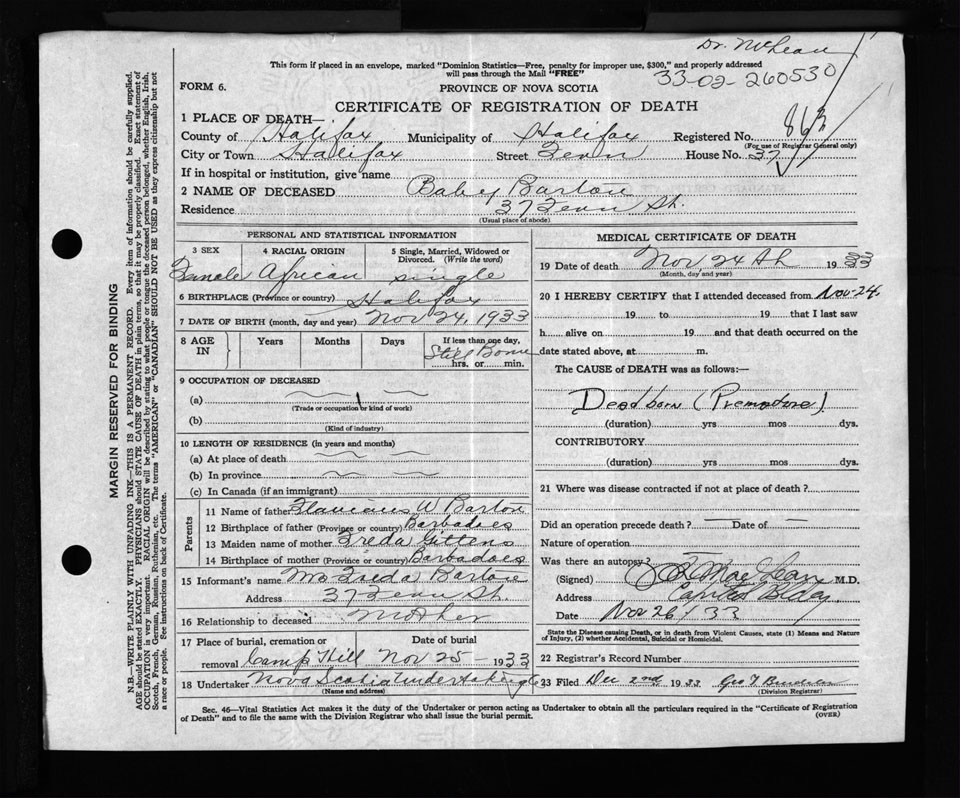 Dr. McLean
This form if placed in an envelope, marked "Dominion Statistics—Free, penalty for improper use, $300," and properly addressed
will pass through the Mail "FREE"
33-02-260530
FORM 6.
PROVINCE OF NOVA SCOTIA
CERTIFICATE OF REGISTRATION OF DEATH
1 PLACE OF DEATH—
County of Halifax Municipality of Halifax Registered No. 863
(For use of Registrar General only)
City or Town Halifax Street Fenn House No. 37
If in hospital or institution, give name
2 NAME OF DECEASED Baby Barton
Residence 37 Fenn St.
(Usual place of abode)
PERSONAL AND STATISTICAL INFORMATION
3 SEX 4 RACIAL ORIGIN 5 Single, Married, Widowed or
Divorced. (Write the word)
Female African single
6 BIRTHPLACE (Province or country) Halifax
7 DATE OF BIRTH (month, day and year) Nov 24, 1933
8 AGE IN Years Months Days If less than one day,
Still Borne
hrs. or min.
9 OCCUPATION OF DECEASED
(a)
(Trade or occupation or kind of work)
(b)
(Kind of industry)
10 LENGTH OF RESIDENCE (in years and months)
(a) At place of death
(b) In province
(c) In Canada (if an immigrant)
Parents
11 Name of father W Barton
12 Birthplace of father (Province or country) Barbadoes
13 Maiden name of mother Freda Gittens
14 Birthplace of mother (Province or country) Barbadoes
15 Informant's name Freda Barton
Address 37 Fenn St.
16 Relationship to deceased Mother
17 Place of burial, cremation or Date of burial
removal Camp Hill Nov 25 - 1933
18 Undertaker Nova Scotia Undertaking Co
(Name and address)
MEDICAL CERTIFICATE OF DEATH
19 Date of death Nov 24th 1933
(Month, day and year)
20 I HEREBY CERTIFY that I attended deceased from Nov-24
19 to 19 that I last saw
h alive on 19 and that death occurred on the
date stated above, at m.
The CAUSE of DEATH was as follows:—
Dead born (Premature)
(duration) yrs mos dys.
CONTRIBUTORY
(duration) yrs mos dys.
21 Where was disease contracted if not at place of death?
Did an operation precede death? — Date of —
Nature of operation
Was there an autopsy?
(Signed) M.D.
Address Capitol Bldg
Date Nov 26/33
State the Disease causing Death, or in death from Violent Causes, state (1) Means and Nature
of Injury, (2) whether Accidental, Suicidal or Homicidal.
22 Registrar's Record Number
23 Filed Dec 2nd 1933 Geo T
(Division Registrar)
Sec. 46—Vital Statistics Act makes it the duty of the Undertaker or person acting as Undertaker to obtain all the particulars required in the "Certificate of Registration
of Death" and to file the same with the Division Registrar who shall issue the burial permit.
(OVER)
MARGIN RESERVED FOR BINDING
N.B.—WRITE PLAINLY WITH UNFADING INK—THIS IS A PERMANENT RECORD. Every item of information should be carefully supplied.
AGE should be stated EXACTLY. PHYSICIANS should STATE CAUSE OF DEATH in plain terms, so that it may be properly classified. Exact statement of
OCCUPATION is very important. RACIAL ORIGIN will be described by stating to what people or tongue the deceased person belonged, whether English, Irish,
Scotch, French, German, Russian, Ruthenian, etc. The terms "AMERICAN" or "CANADIAN" SHOULD NOT BE USED as they express citizenship but not
a race or people. See instructions on back of Certificate.